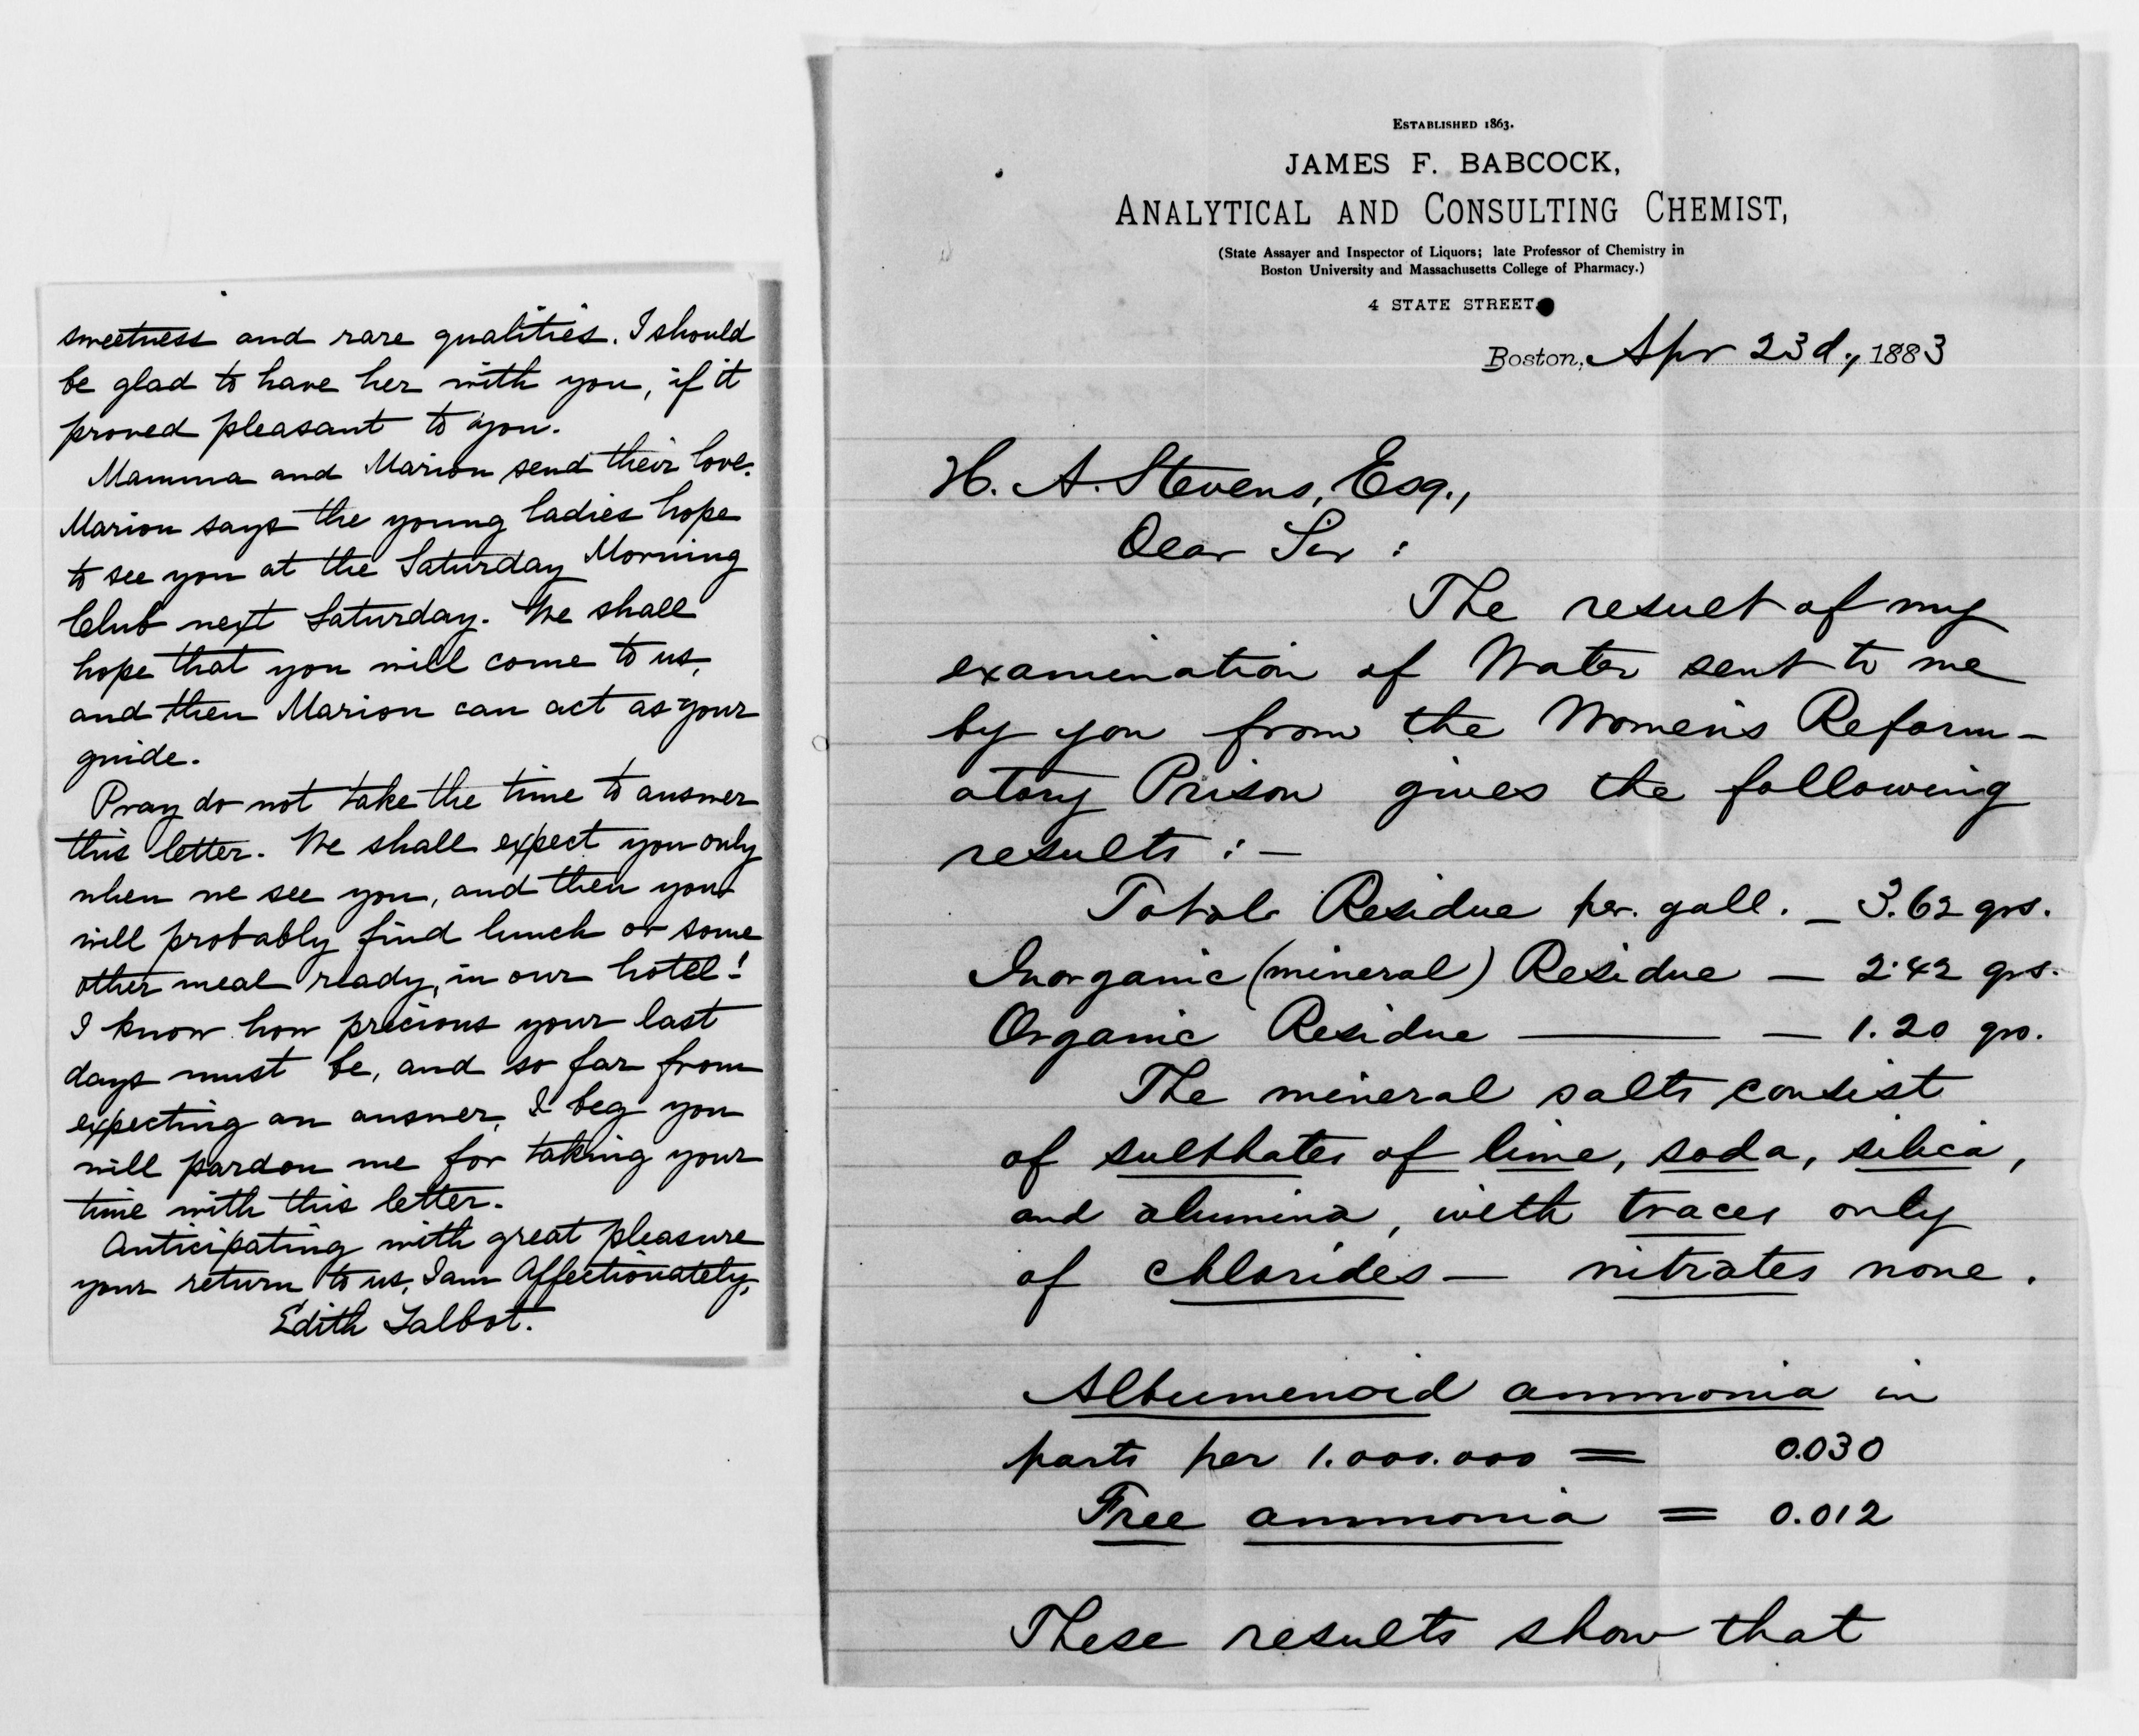 sweetness and rare qualities. I should
be glad to have her with you, if it
proved pleasant to you.
Mamma and Marion send their love.
Marion says the young ladies hope
to see you at the Saturday Morning
Club next Saturday. We shall
hope that you will come to us,
and then Marion can act as your
guide.
Pray do not take the time to answer
this letter. We shall expect you only
when we see you, and then you
will probably find lunch or some
other meal ready, in our hotel!
I know how precious your last
days must be, and so far from
expecting an answer, I beg you
will pardon me for taking your
time with this letter.
Anticipating with great pleasure
your return to us, I am Affectionately,
Edith Talbot.
ESTABLISHED 1863.
JAMES F. BABCOCK,
ANALYTICAL AND CONSULTING CHEMIST,
(State Assayer and Inspector of Liquors; late Professor of Chemistry in
Boston University and Massachusetts College of Pharmacy.)
4 STATE STREET
Boston, Apr 23d, 1883
H. A. Stevens, Esq.,
Dear Sir :
The result of my
examination of Water sent to me
by you from the Women's Reform-
atory Prison gives the following
results : —
Total Residue per. gall. — 3.62 grs.
Inorganic (mineral) Residue — 2.42 grs.
Organic Residue — — 1.20 grs.
The mineral salts consist
of sulphates of lime, soda, silica,
and alumina, with traces only
of chlorides — nitrates none.
Albumenoid ammonia in
parts per 1.000.000 = 0.030
Free ammonia = 0.012
These results show that